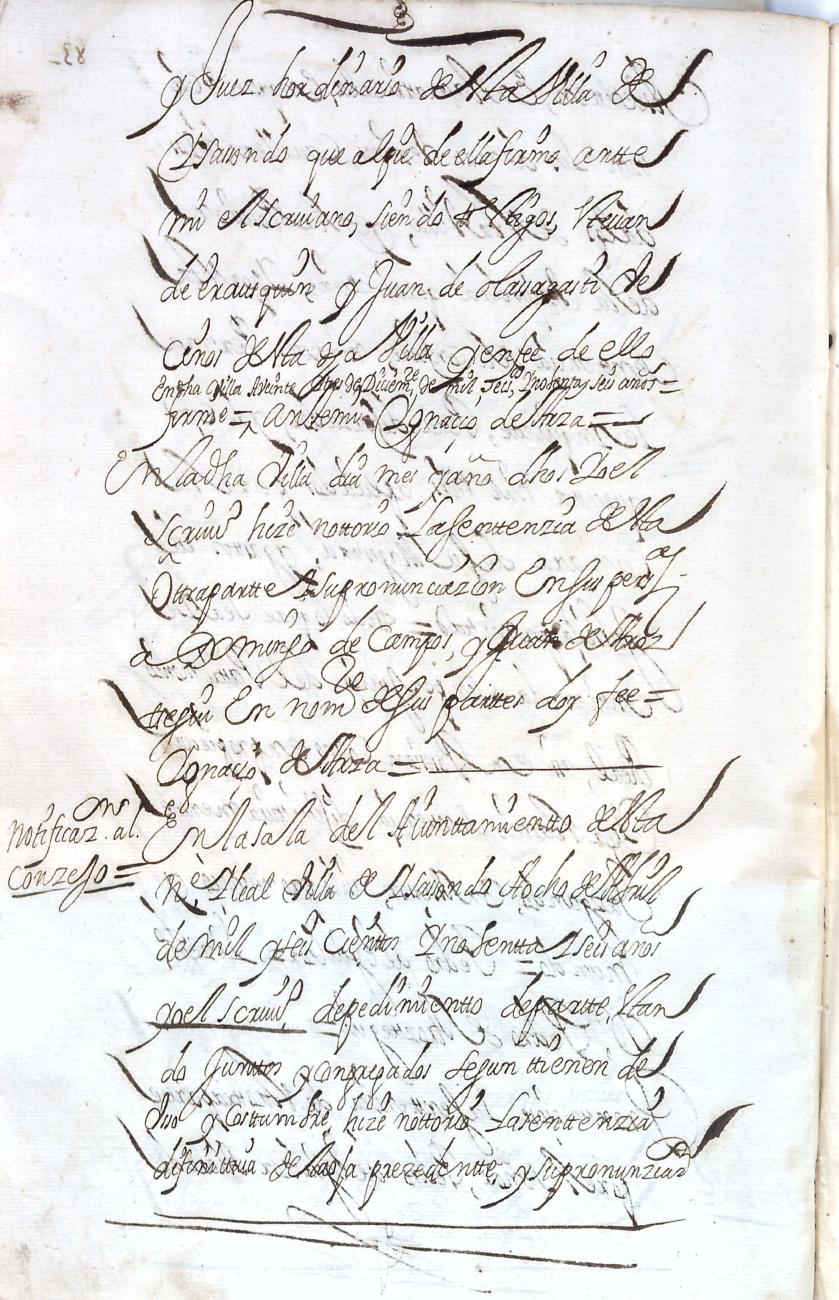 y Juez hordinario de esta Villa de
Ysasondo que al pie de ella firmo antte
mi el scruiano, siendo tt.os Esteuan
de erausquin y Juan de olaisagasti Ve
cinos de esta dha Villa y en fee de ello
En dha Villa A veinte de Diciem.re de mil, seis.s y nobenta y seis años =
firme =, Antemi Ygnacio de
En la dha Villa dia mes y año dhos Yo el
scruu.o hize nottorio La senttenzia de esta
Ottra partte y su pronunciazion En sus pers.as
a Domingo de Campos, y Juan de
ttegui En nom.re de sus partes doy fee =
Ygnacio de =
Notificaz.on al
Conzejo =
En la sala del Aiunttamientto de esta
N. y Leal Villa de Ysasondo A ocho de Abril
de mil y seis Cienttos y nobentta y seis años
yo el scruu.o de pedimientto de partte, estan
do Junttos y congregados segun ttienen de
Vso y Costtumbre, hize nottorio La senttenzia
difinittiua de la oja prezedentte, y su pronunziaz.on